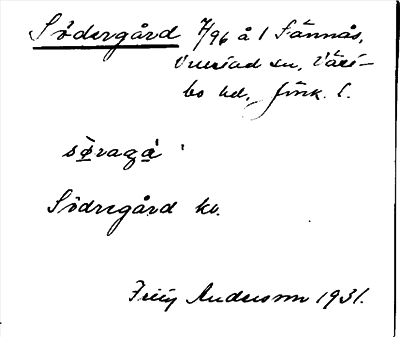 Södergård 7/96 å 1 Fännäs,
Vreriad sn, Väst-
bo hd, Jönk. l.
söragá
Södregård kv.
Andersson 1931.